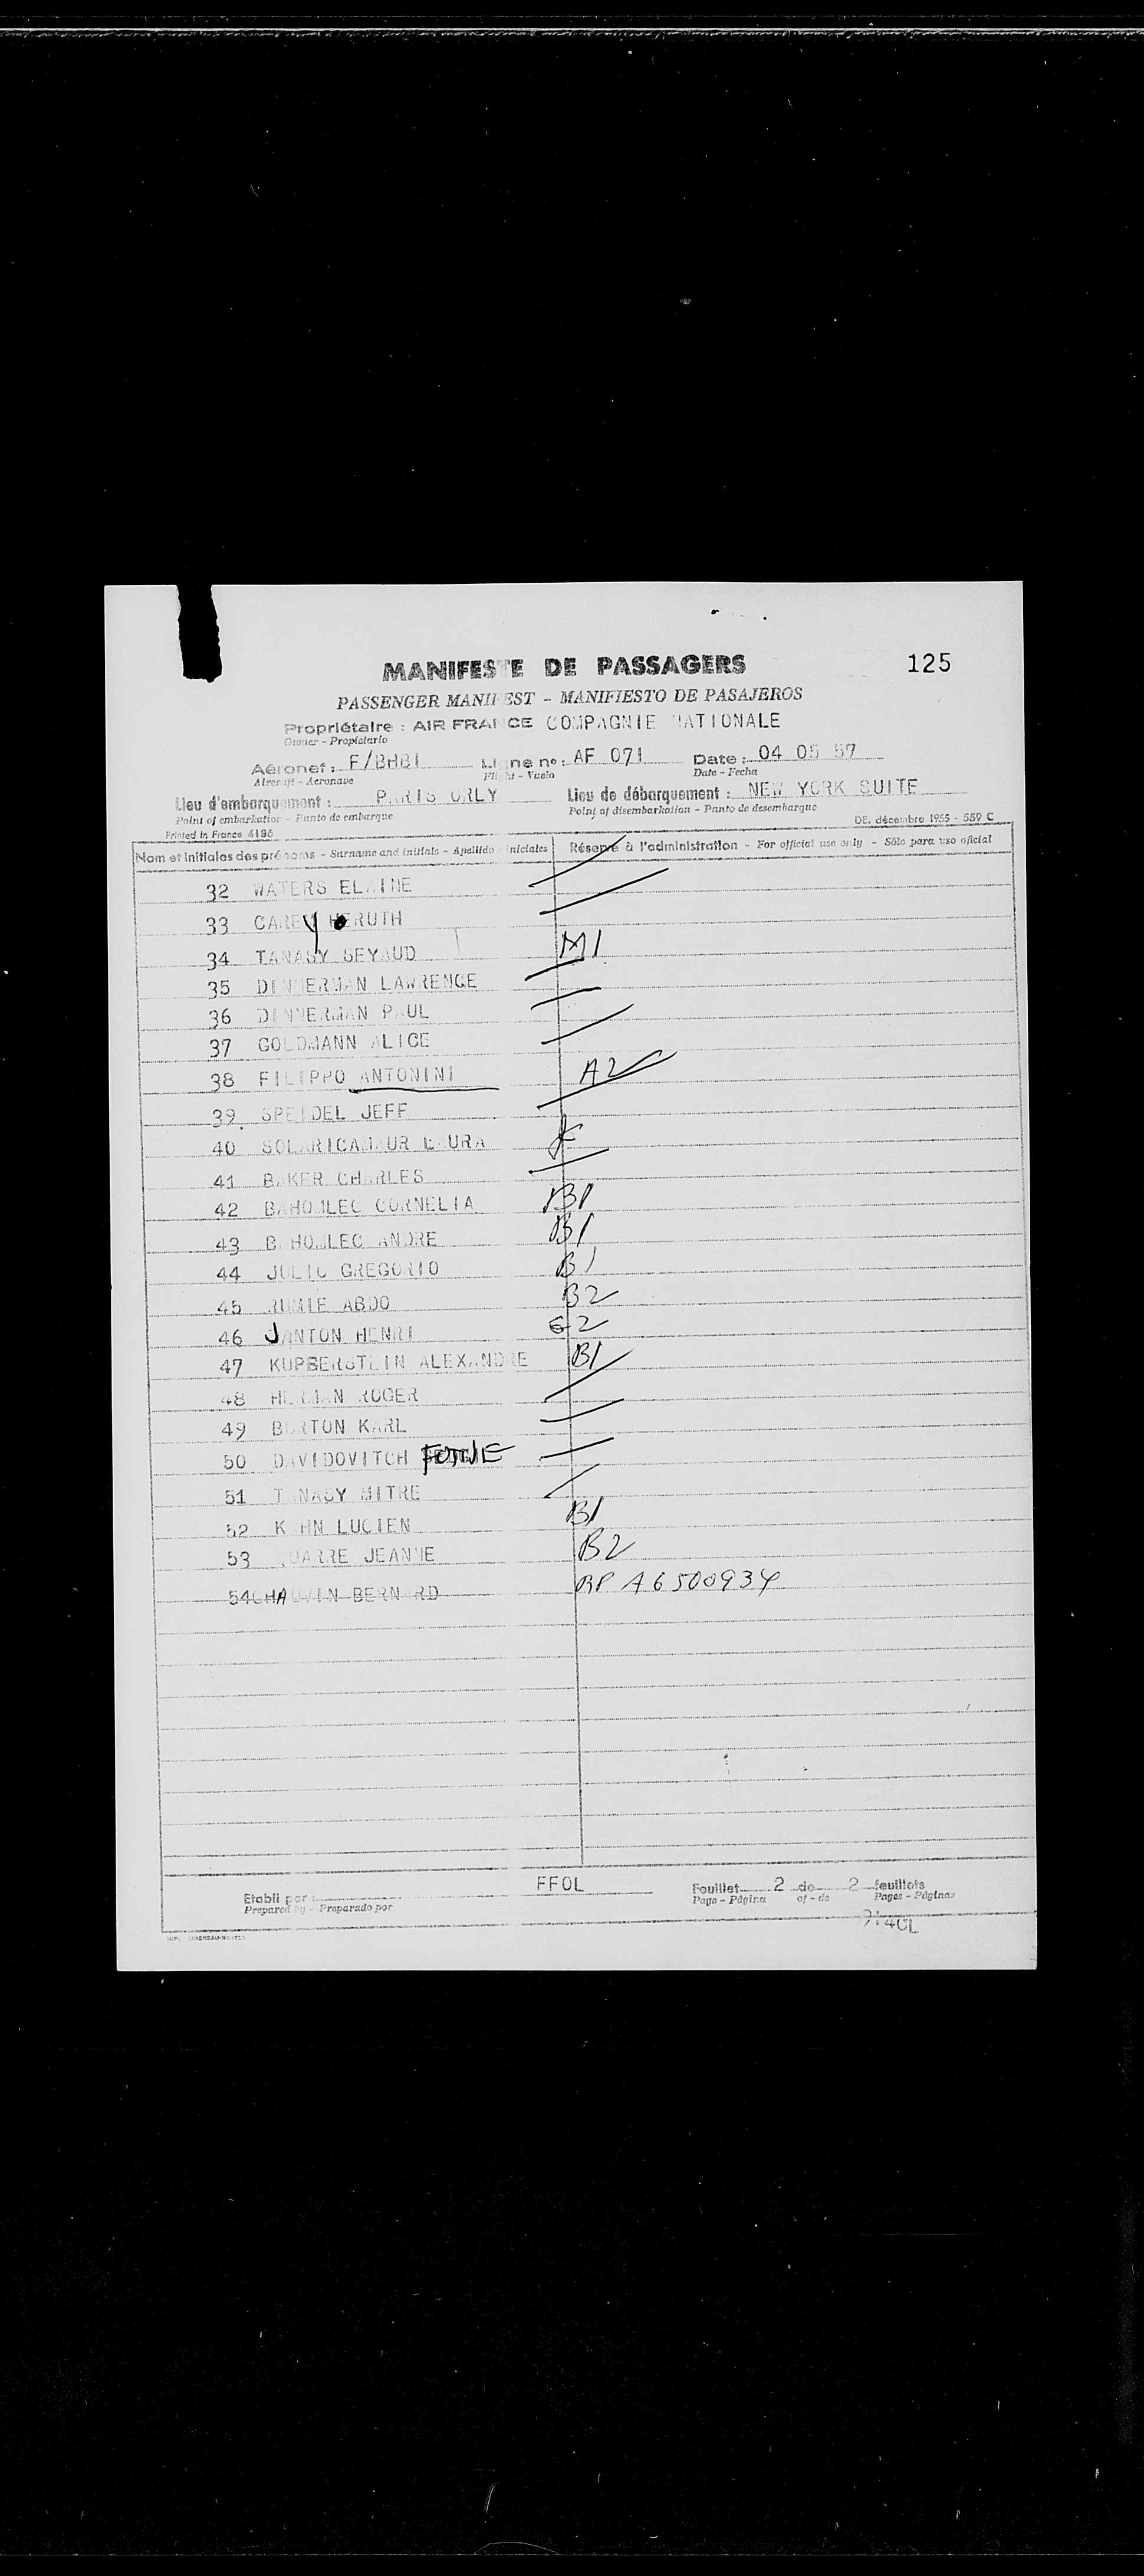 MANIFESTE DE PASSAGERS 125
PASSENGER MANIFEST - MANIFIESTO DE PASAJEROS
Propriétaire : AIR FRANCE COMPAGNIE NATIONALE
Owner - Propietario
Aéronef : F/BHBI Ligne no : AF 071 Date : 04 05 57
Aircraft - Aeronave Flight - Vuelo Date - Fecha
Lieu d'embarquement : PARIS ORLY Lieu de débarquement : NEW YORK SUITE
Point of embarkation - Punto de embarque Point of disembarkation - Panto de desembarque
Printed in France 4186 DE. décembre 1955 - 559 C
Nom et initiales des prénoms - Surname and initials - Apellido iniciales Réservé à l'administration - For official use only - Sólo para uso oficial
32 WATERS ELAINE
33 CAREY RUTH
34 TANASY SEYAUD M1
35 DINNERMAN LAWRENCE
36 DINNERMAN PAUL
37 GOLDMANN ALICE
38 FILIPPO ANTONINI A2
39. SPEIDEL JEFF
40 SOLARICAMAUR LAURA
41 BAKER CHARLES
42 BAHOMLEC CORNELIA B1
43 BAHOMLEC ANDRE B1
44 JULIO GREGORIO B1
45 RUMIE ABDO B2
46 JANTON HENRI G2
47 KUPBERSTEIN ALEXANDRE B1
48 HERMAN ROGER
49 BURTON KARL
50 DAVIDOVITCH
51 TANASY MITRE
52 KAHN LUCIEN B1
53 JEANNE B2
54 CHAUVIN BERNARD RP A6500934
FFOL
Etabli par : Feuillet 2 de 2 feuillets
Prepared by - Preparado por Page - Página of - de Pages - Páginas